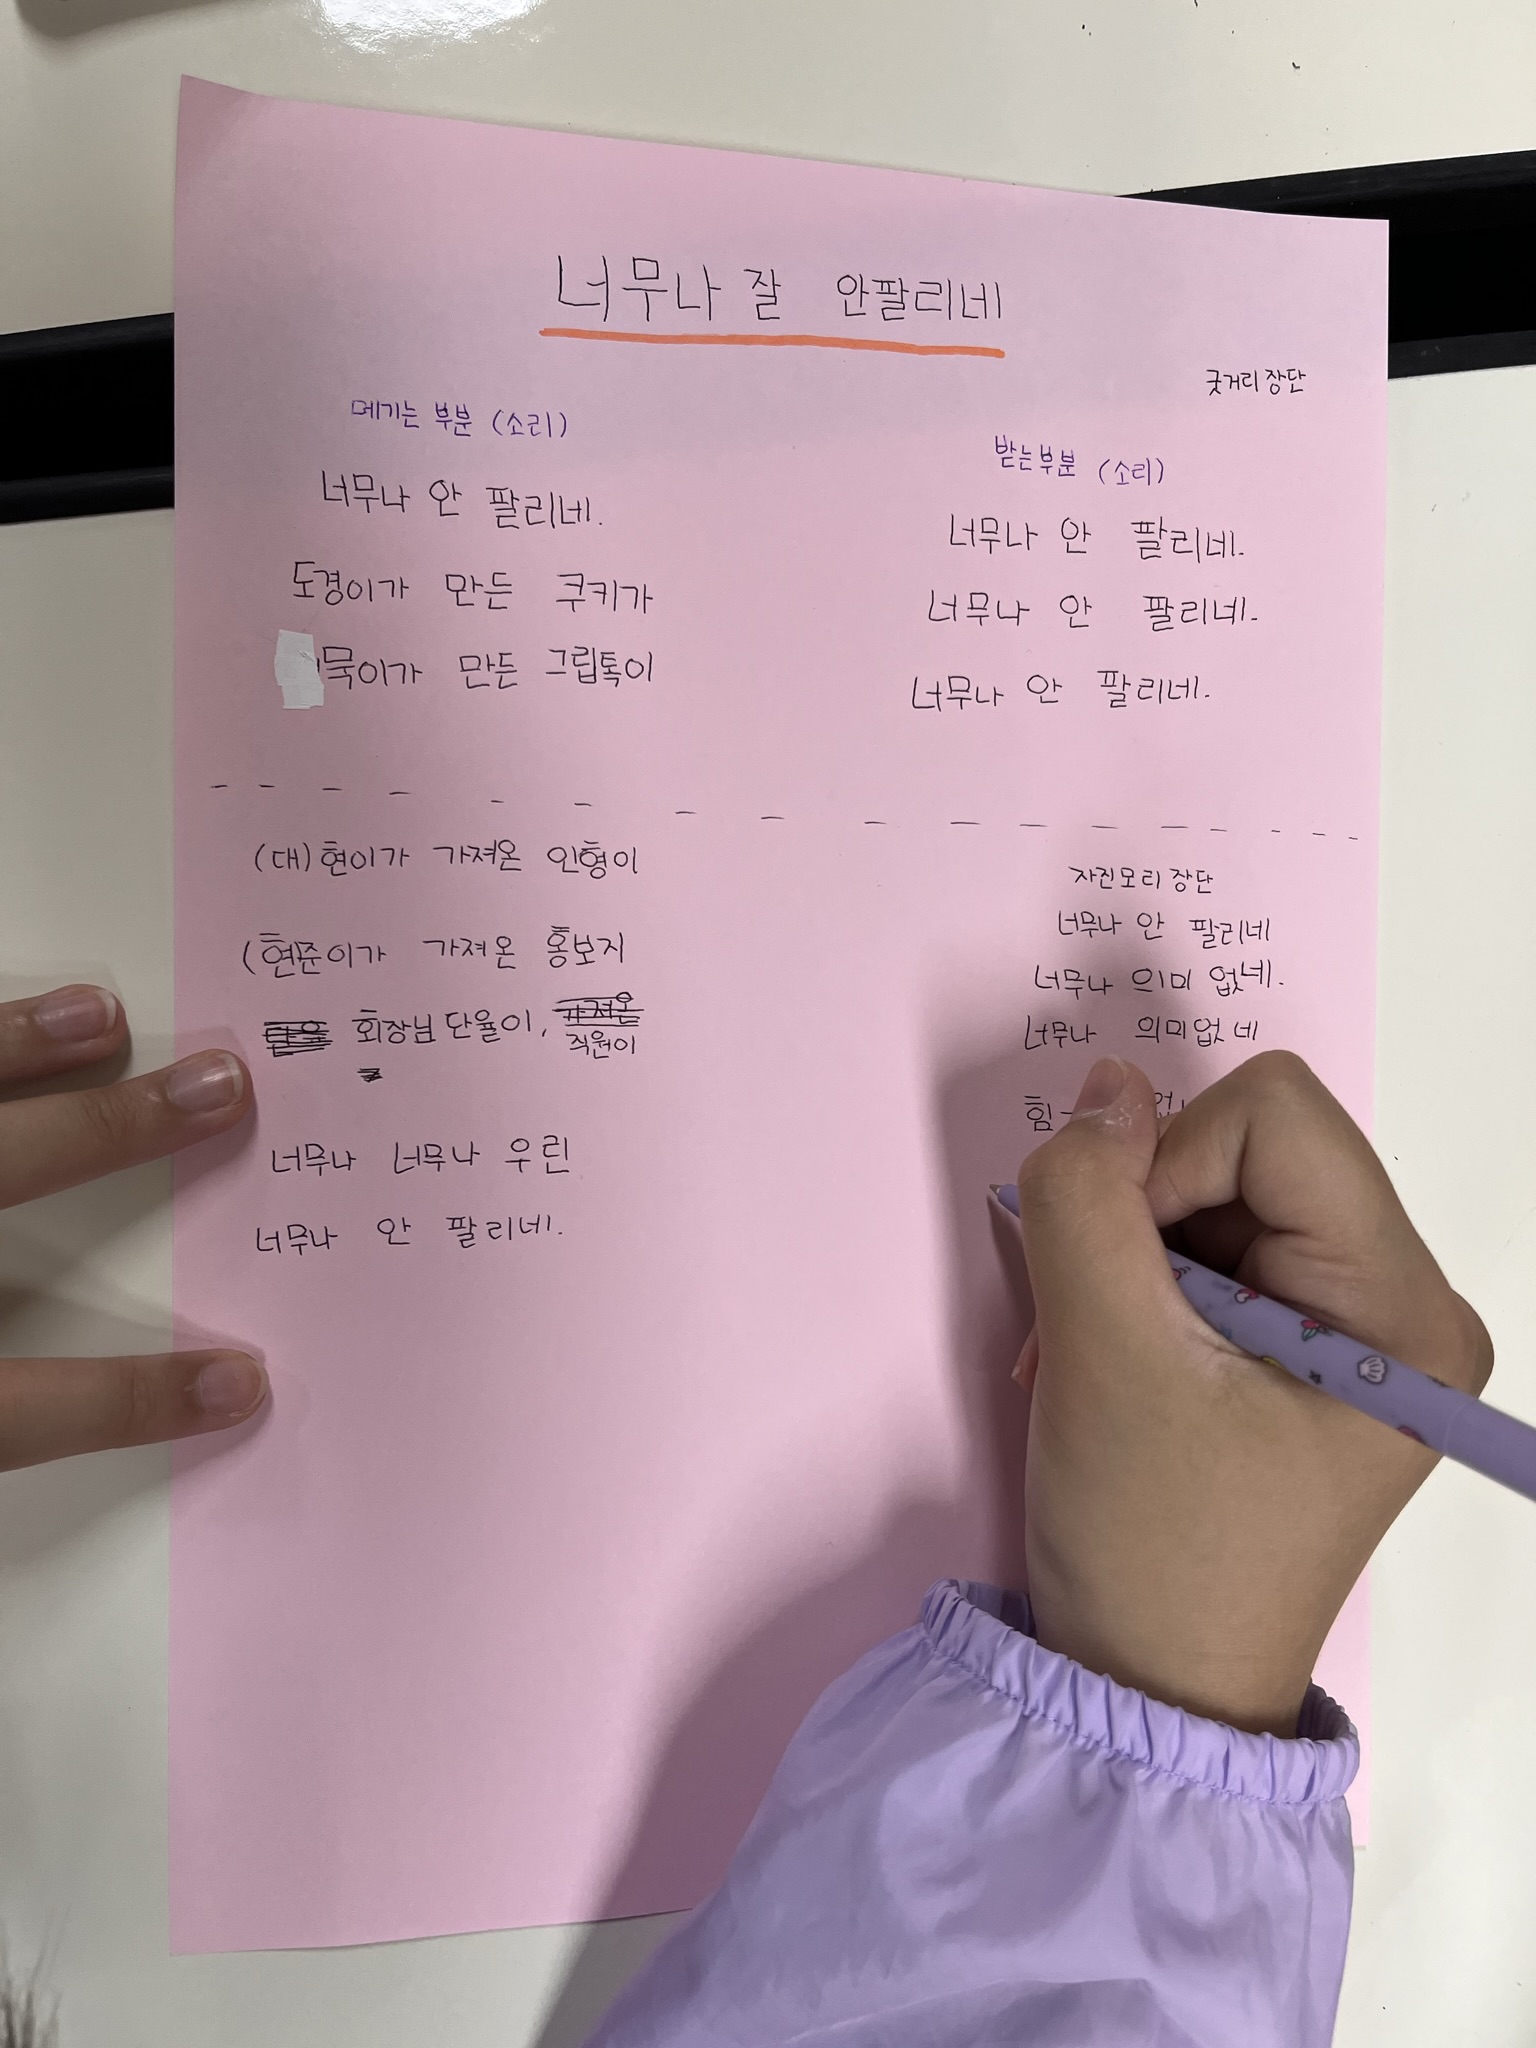 너무나 잘 안팔리네
굿거리 장단
메기는 부분 (소리)
너무나 안 팔리네.
도경이가 만든 쿠키가
묵이가 만든 그립톡이
받는부분 (소리)
너무나 안 팔리네.
너무나 안 팔리네.
너무나 안 팔리네.
(대) 현이가 가져온 인형이
(현준이가 가져온 홍보지
회장님 단율이, 직원이
너무나 너무나 우린
너무나 안 팔리네.
자진모리 장단
너무나 안 팔리네
너무나 의미 없네.
너무나 의미없네
힘